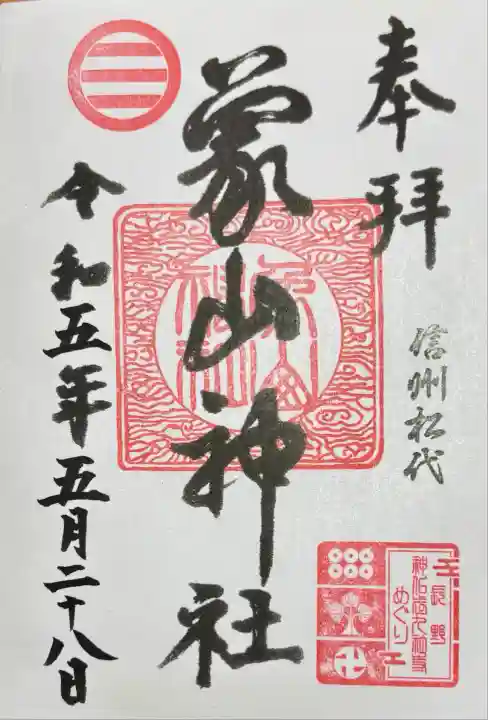 奉拝
信州松代
象山神社
令和五年五月二十八日
長野
めぐり
卍